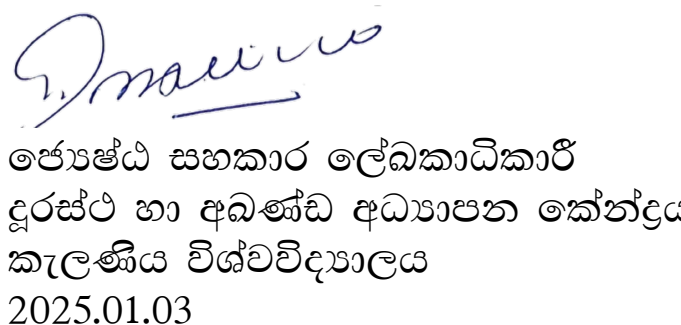 ජ්‍යෙෂ්ඨ සහකාර ලේඛකාධිකාරී
දූරස්ථ හා අඛණ්ඩ අධ්‍යාපන කේන්ද්‍රය
කැලණිය විශ්වවිද්‍යාලය
2025.01.03